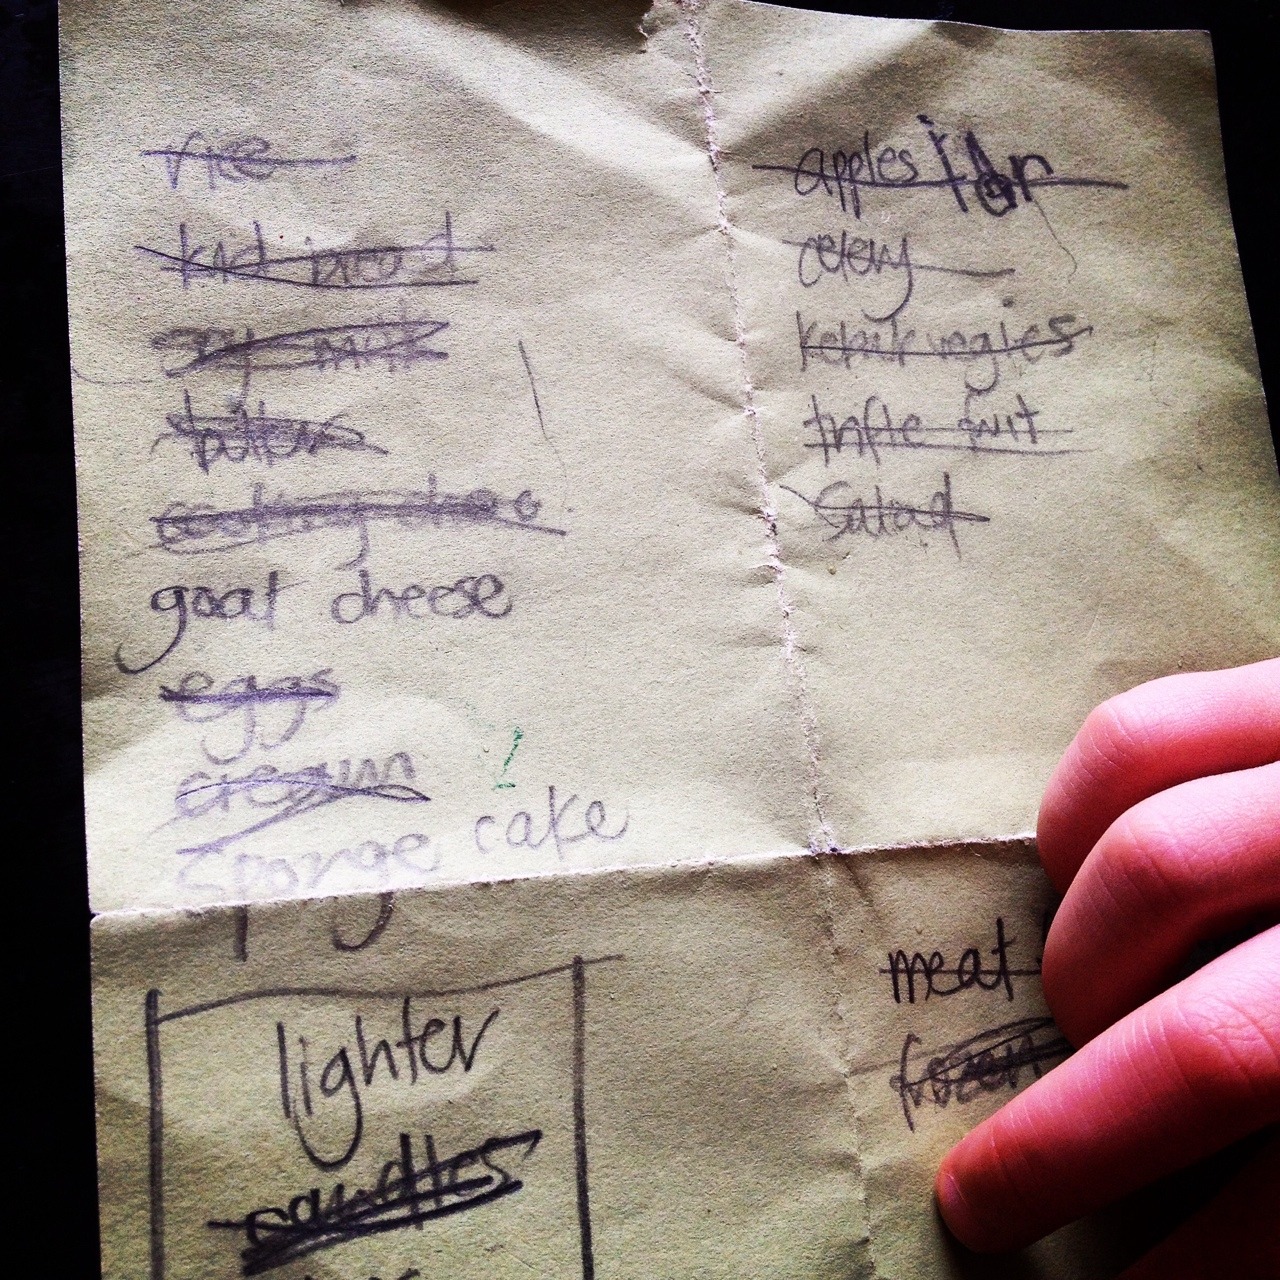 rice
kid bread
soy milk
butter
cooking choc
goat cheese
eggs
cream
sponge cake
lighter
candles
apples
celery
kebab vegies
trifle fruit
salad
meat
frozen